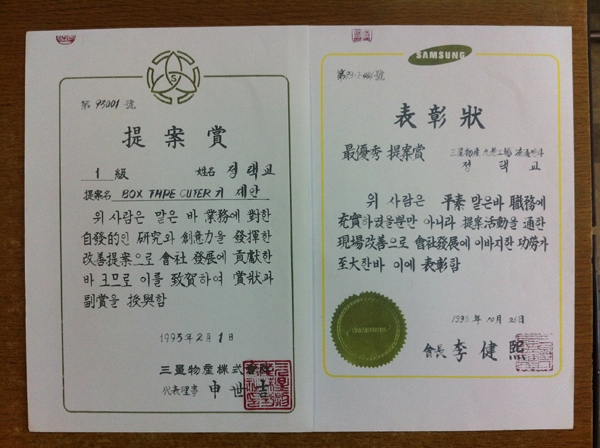 第 93001 號
S
提案賞
1 級 姓名 정택교
提案名 BOX TAPE CUTER기 제안
위 사람은 맡은 바 業務에 對한
自發的인 硏究와 創意力을 發揮한
改善提案으로 會社 發展에 貢獻한
바 크므로 이를 致賀하여 賞狀과
副賞을 授與함
1993年 2月 1日
三星物産株式會社
代表理事 申世吉
SAMSUNG
表彰狀
最優秀 提案賞
정택교
위 사람은 平素 맡은바 職務에
充實하였을뿐만 아니라 提案活動을 通한
現場改善으로 會社發展에 이바지한 功勞가
至大한바 이에 表彰함
1993年 10月 26日
會長 李健熙